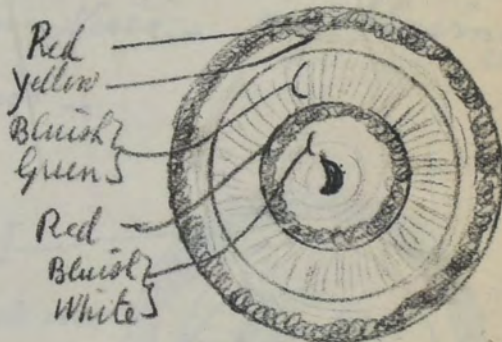 Red
Yellow
Bluish
Green
Red
Bluish
White